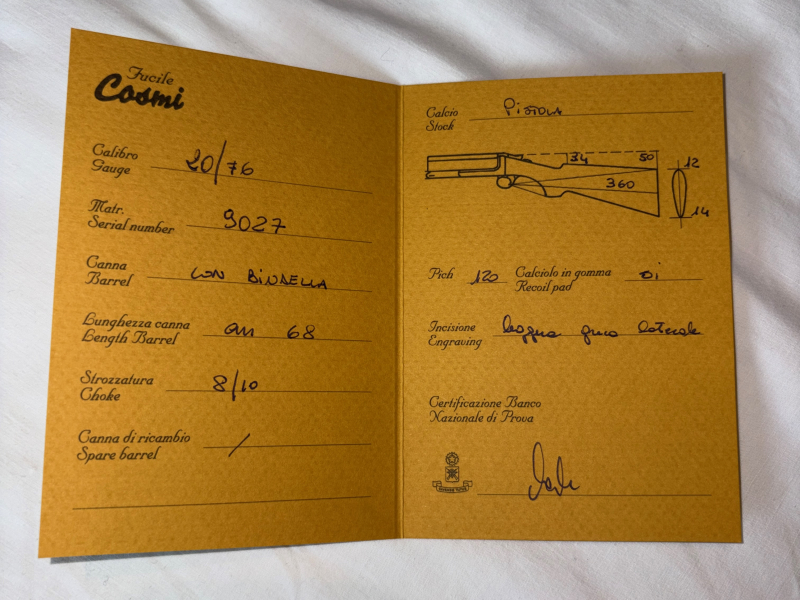 Fucile
Cosmi
Calibro
Gauge 20/76
Matr.
Serial number 9027
Canna
Barrel CON BINDELLA
Lunghezza canna
Length Barrel cm 68
Strozzatura
Choke 8/10
Canna di ricambio
Spare barrel /
Calcio
Stock PISTOLA
34 50 12
360
14
Pich 120 Calciolo in gomma
Recoil pad si
Incisione
Engraving laterale
Certificazione Banco
Nazionale di Prova